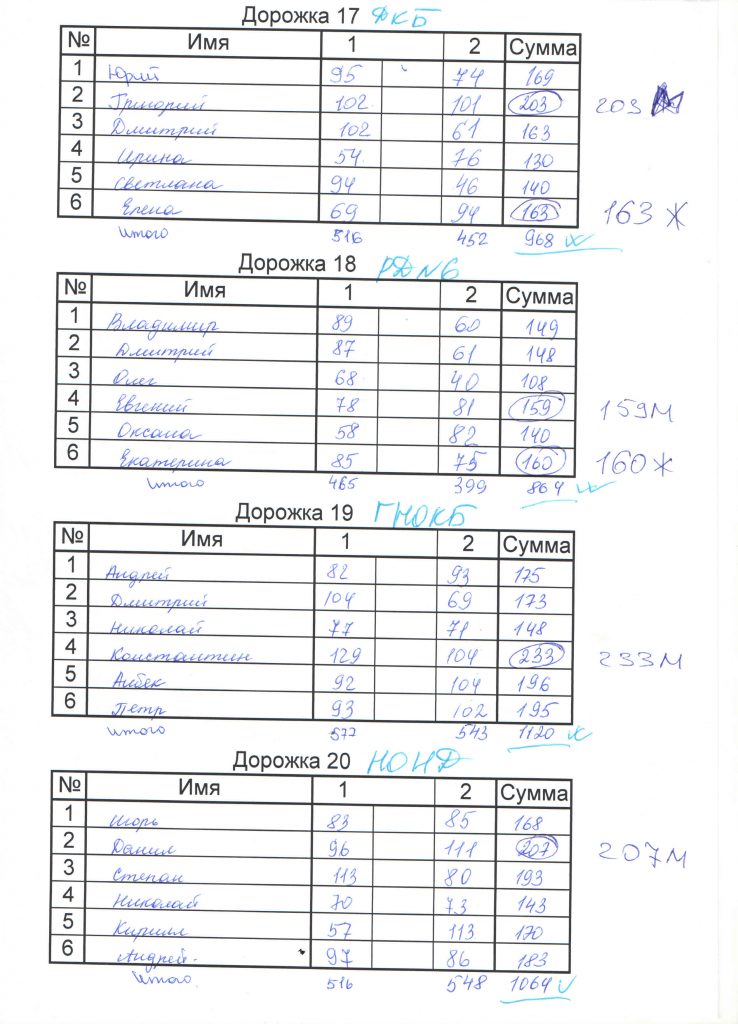 Дорожка 17 ДКБ
№ Имя 1 2 Сумма
1 Юрий 95 74 169
2 Григорий 102 101 203 203 М
3 Дмитрий 102 61 163
4 Ирина 54 76 130
5 Светлана 94 46 140
6 Елена 69 94 163 163 Ж
итого 516 452 968
Дорожка 18 РД№6
№ Имя 1 2 Сумма
1 Владимир 89 60 149
2 Дмитрий 87 61 148
3 Олег 68 40 108
4 Евгений 78 81 159 159 М
5 Оксана 58 82 140
6 Екатерина 85 75 160 160 Ж
итого 465 399 864
Дорожка 19 ГНОКБ
№ Имя 1 2 Сумма
1 Андрей 82 93 175
2 Дмитрий 104 69 173
3 Николай 77 71 148
4 Константин 129 104 233 233 М
5 Аибек 92 104 196
6 Петр 93 102 195
итого 577 543 1120
Дорожка 20 НОНД
№ Имя 1 2 Сумма
1 Игорь 83 85 168
2 Данил 96 111 207 207 М
3 Степан 113 80 193
4 Николай 70 73 143
5 Кирилл 57 113 170
6 Андрей 97 86 183
итого 516 548 1064